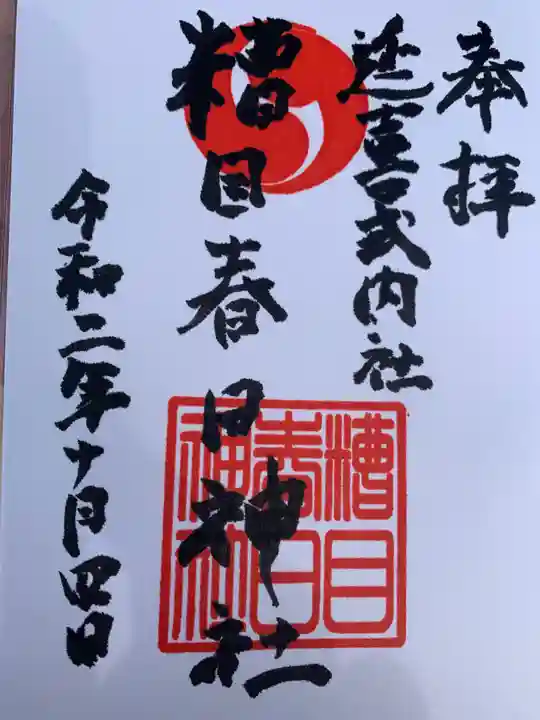 奉拝
延喜式内社
糟目春日神社
糟目
春日
神社
令和二年十月四日